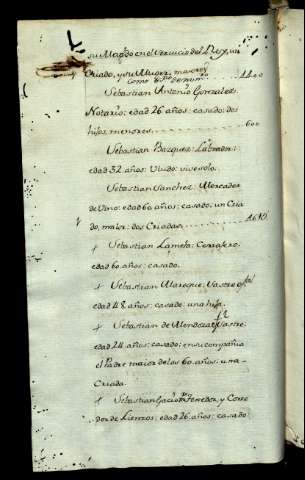 su Marido en el servicio del Rey, un
Criado, y su Muger, maiores 1100
Como Esno de num.ro
Sebastian Antonio Gonzalez:
Notario: edad 26 años: casado: dos
hijos menores 600
Sebastian Bazquez: Labrador:
edad 32 años: Viudo: vive solo.
Sebastian Sanchez: Mercader
de Vino: edad 60 años: casado, un Cria
do, maior: dos Criadas
+ Sebastian Lameta: Cerrajero:
edad 60 años: casado.
+ Sebastian Manrique: Sastre
edad 48 años: casado: una hija.
+ Sebastian de Mendoza: Sastre:
edad 24 años: casado: en su compañia
el Padre maior de los 60 años: una
Criada.
+ Sebastian Tenedor, y Corre
dor de Lienzos: edad 26 años: casado